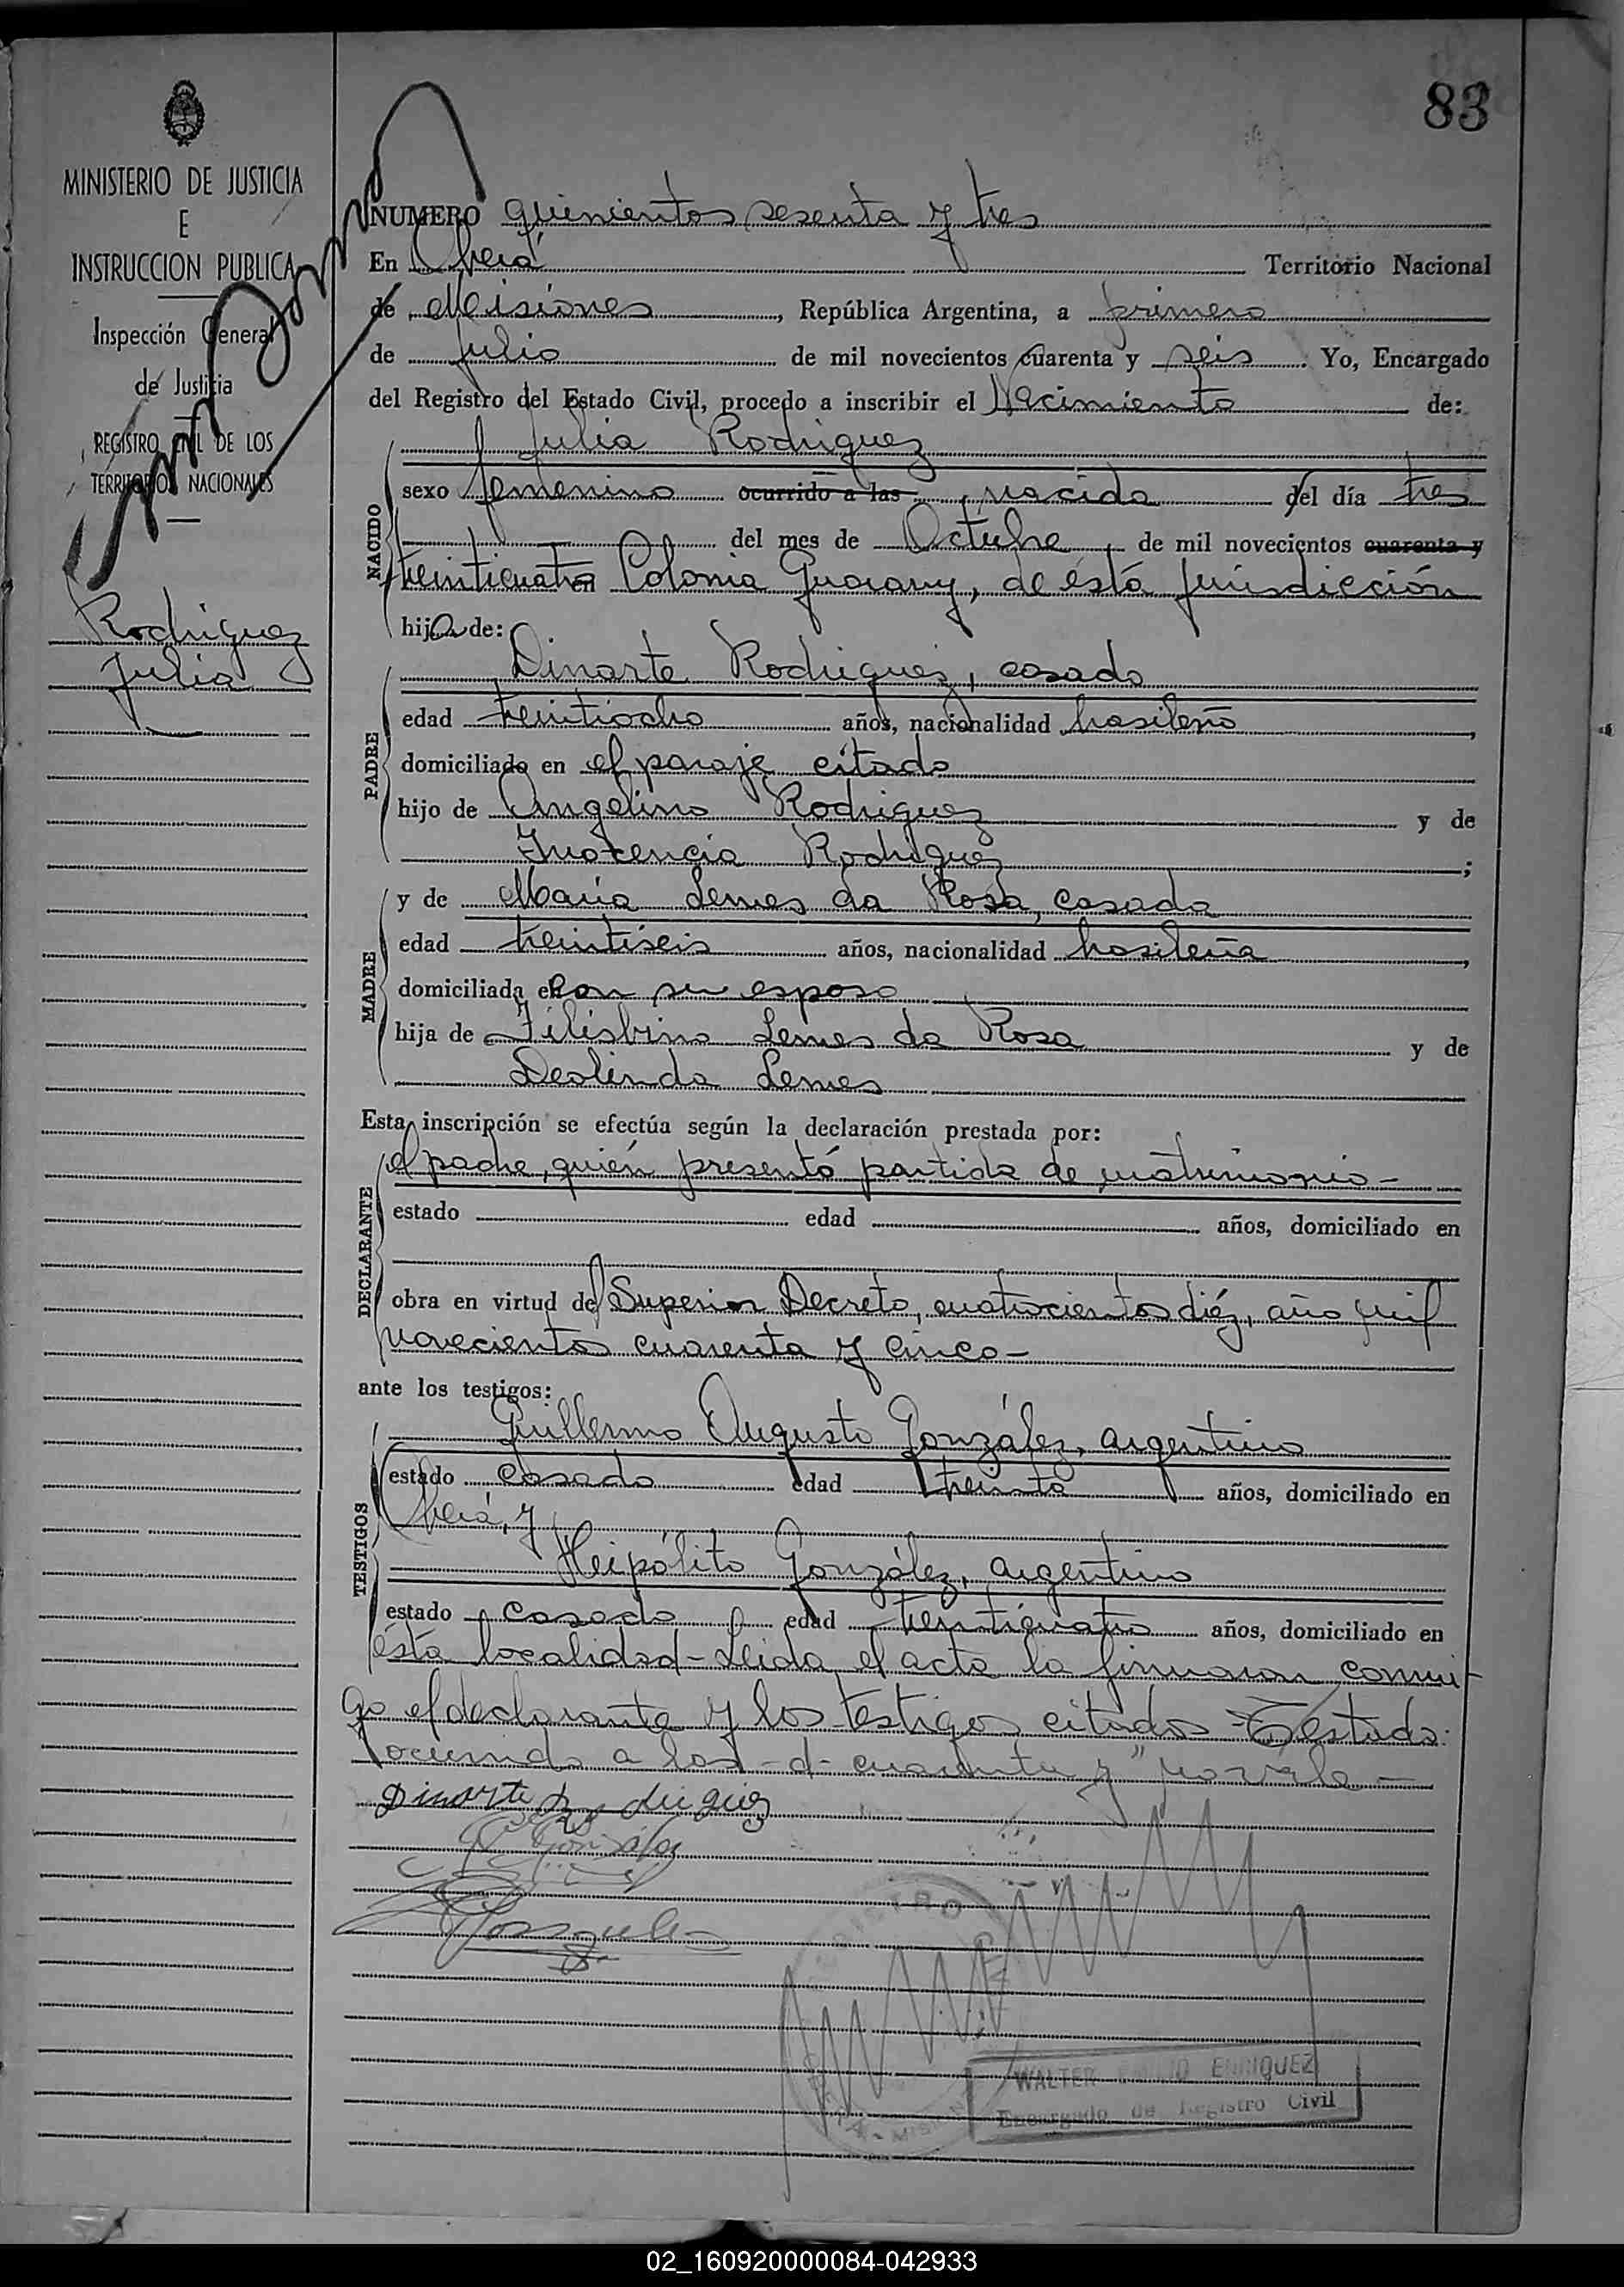 83
MINISTERIO DE JUSTICIA
E
INSTRUCCION PUBLICA
Inspección General
de Justicia
REGISTRO CIVIL DE LOS
TERRITORIOS NACIONALES
Rodriguez
Julia
NUMERO quinientos sesenta y tres
En Oberá Territorio Nacional
de Misiones, República Argentina, a primero
de Julio de mil novecientos cuarenta y seis. Yo, Encargado
del Registro del Estado Civil, procedo a inscribir el Nacimiento de:
NACIDO
Julia Rodriguez
sexo femenino ocurrido a las , nacida del día tres
del mes de Octubre, de mil novecientos cuarenta y
treinticuatro en Colonia Guarany, de ésta jurisdicción
hija de:
PADRE
Dinarte Rodriguez, casado
edad treintiocho años, nacionalidad brasileño,
domiciliado en el paraje citado
hijo de Angelino Rodriguez y de
Inocencia Rodriguez;
MADRE
y de Maria Lemes da Rosa, casada
edad treintiseis años, nacionalidad brasileña,
domiciliada en con su esposo
hija de Filisbino Lemes da Rosa y de
Deolinda Lemes
Esta inscripción se efectúa según la declaración prestada por:
DECLARANTE
el padre, quién presentó partida de matrimonio-
estado edad años, domiciliado en
obra en virtud del Superior Decreto, cuatrocientos diéz, año mil
novecientos cuarenta y cinco-
ante los testigos:
TESTIGOS
Guillermo Augusto González, argentino
estado casado edad treinta años, domiciliado en
Oberá, y
Heipólito González, argentino
estado casado edad treinticuatro años, domiciliado en
ésta localidad- Leida el acta la firmaron conmi-
go el declarante y los testigos citados - Testado:
"ocurrido a las -d- cuarenta y" no vale-
Dinarte Rodriguez
González
WALTER EMILIO ENRIQUEZ
Encargado de Registro Civil
02_160920000084-042933